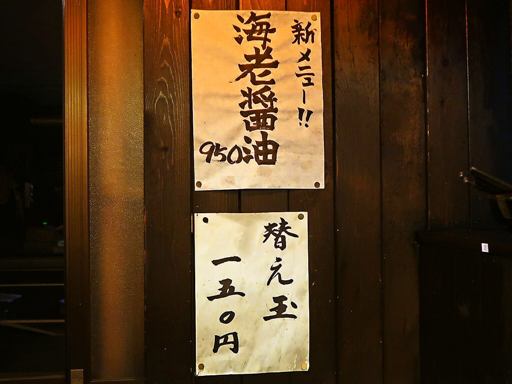 新メニュー!!
海老醤油
950
替え玉
一五〇円